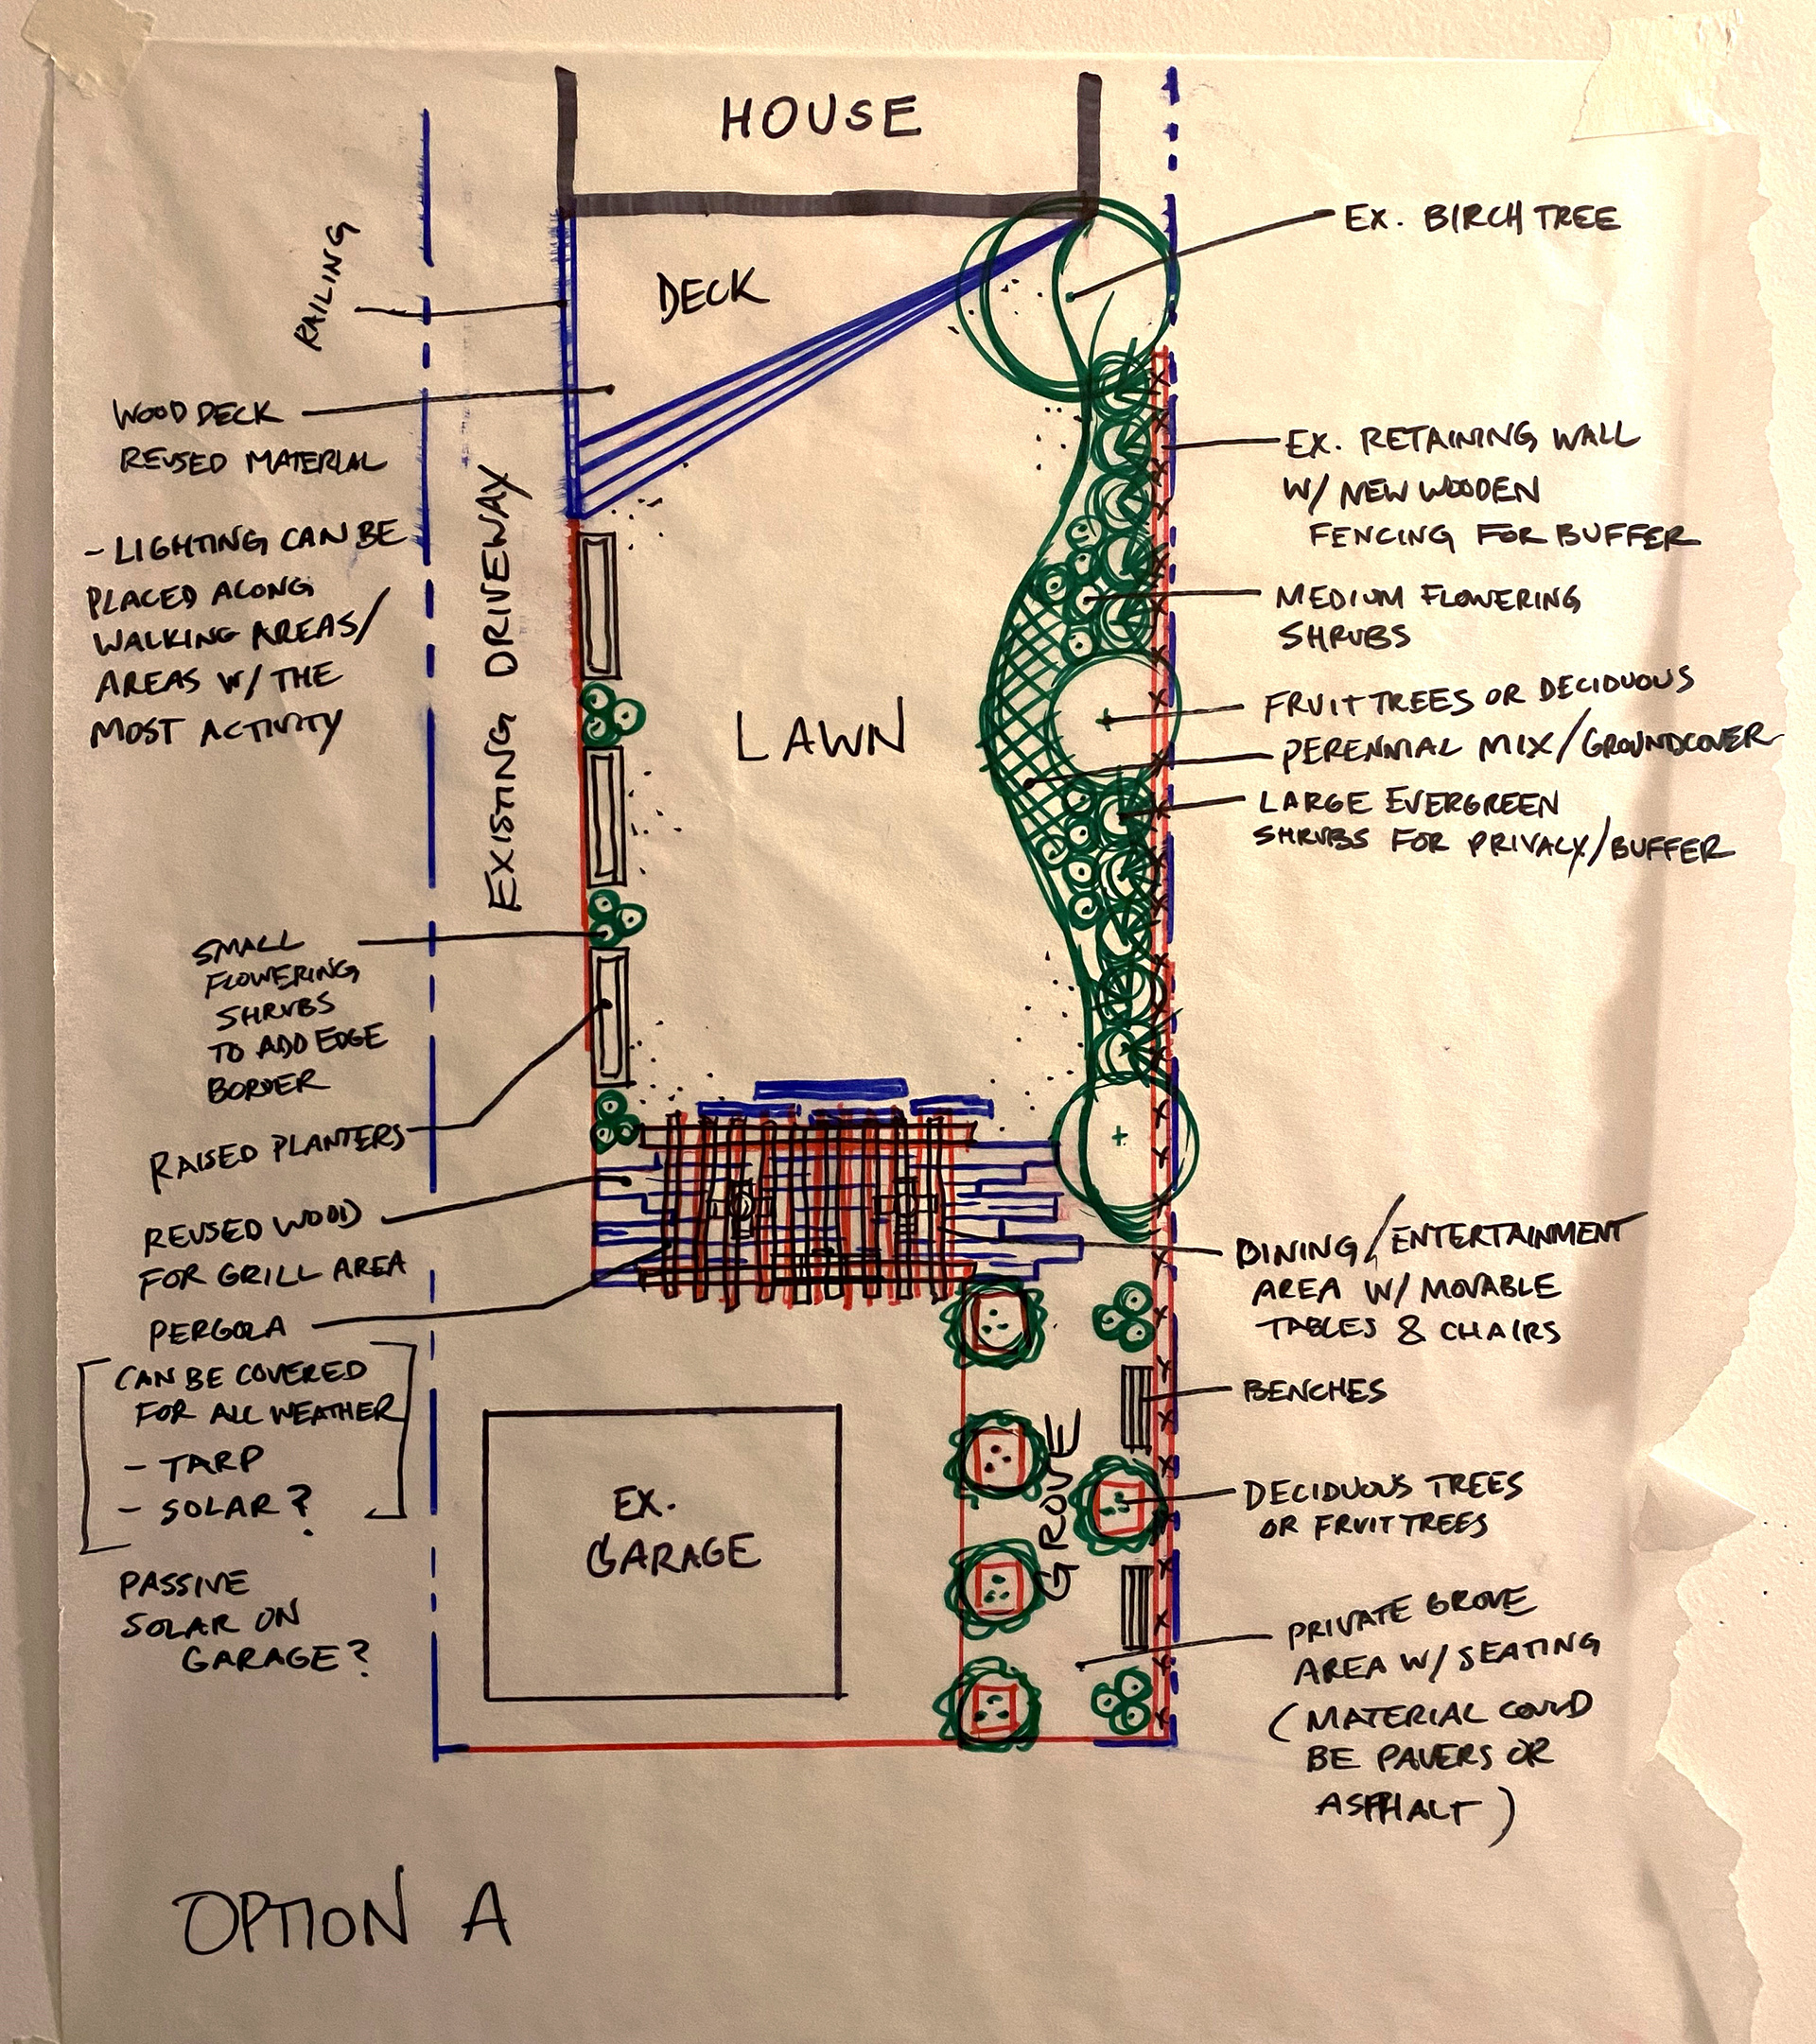 HOUSE
DECK
RAILING
WOOD DECK
REUSED MATERIAL
- LIGHTING CAN BE
PLACED ALONG
WALKING AREAS/
AREAS W/ THE
MOST ACTIVITY
EXISTING DRIVEWAY
LAWN
SMALL
FLOWERING
SHRUBS
TO ADD EDGE
BORDER
RAISED PLANTERS
REUSED WOOD
FOR GRILL AREA
PERGOLA
CAN BE COVERED
FOR ALL WEATHER
- TARP
- SOLAR?
PASSIVE
SOLAR ON
GARAGE?
EX.
GARAGE
GROVE
EX. BIRCH TREE
EX. RETAINING WALL
W/ NEW WOODEN
FENCING FOR BUFFER
MEDIUM FLOWERING
SHRUBS
FRUIT TREES OR DECIDUOUS
PERENNIAL MIX/GROUNDCOVER
LARGE EVERGREEN
SHRUBS FOR PRIVACY/BUFFER
DINING/ENTERTAINMENT
AREA W/ MOVABLE
TABLES & CHAIRS
BENCHES
DECIDUOUS TREES
OR FRUIT TREES
PRIVATE GROVE
AREA W/ SEATING
(MATERIAL COULD
BE PAVERS OR
ASPHALT)
OPTION A